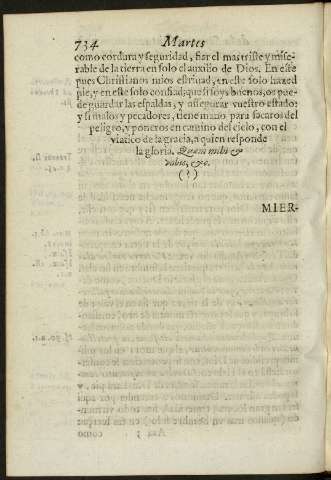 734 Martes
como cordura y seguridad, fiar el mas triste y mise-
rable de la tierra en solo el auxilio de Dios. En este
pues Christianos mios estriuad, en este solo hazed
pie, y en este solo confiad; que si soys buenos, os pue-
de guardar las espaldas, y assegurar vuestro estado:
y si malos y pecadores, tiene mano para sacaros del
peligro, y poneros en camino del cielo, con el
viatico de la gracia, a quien responde
la gloria. Quam mihi &
vobis, &c.
(?)
MIER-